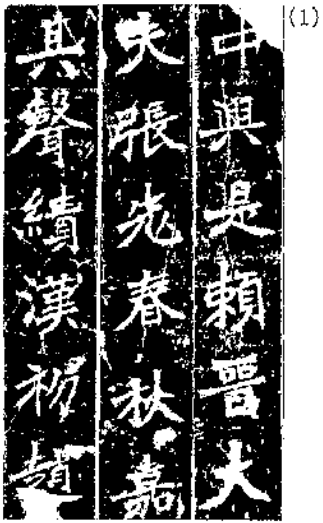 (1)
中興是賴晉大
夫張老春秋嘉
其聲績漢初趙